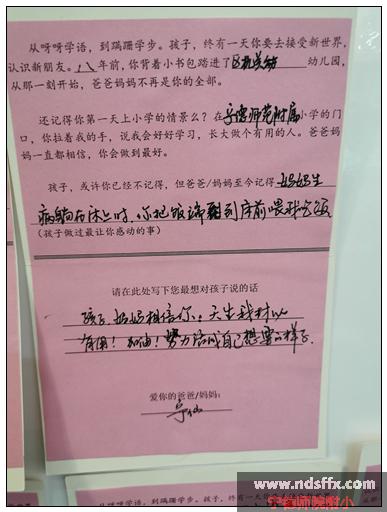 从呀呀学语，到蹒跚学步。孩子，终有一天你要去接受新世界，
认识新朋友。八年前，你背着小书包踏进了区机关幼幼儿园，
从那一刻开始，爸爸妈妈不再是你的全部。
还记得你第一天上小学的情景么？在宁德师范附属小学的门
口，你拉着我的手，说我会好好学习，长大做个有用的人。爸爸妈
妈一直都相信，你会做到最好。
孩子，或许你已经不记得，但爸爸/妈妈至今记得妈妈生
病躺在床上时，你把饭端到床前喂我吃饭
(孩子做过最让你感动的事)
请在此处写下您最想对孩子说的话
孩子，妈妈相信你：天生我材必
有用！加油！努力活成自己想要的样子.
爱你的爸爸/妈妈：
从呀呀学语，到蹒跚学步。孩子，终有一天你要去接受新世
www.ndsffx.com
宁德师院附小